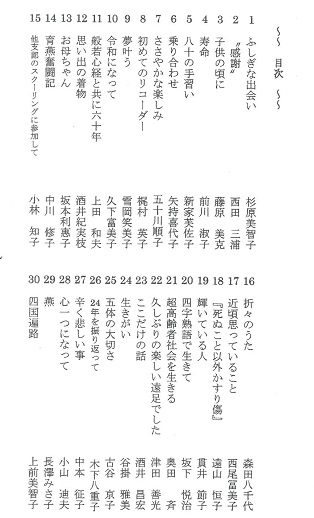 ～～ 目次 ～～
1 ふしぎな出会い 杉原美智子
2 〝感謝〟 西田 三浦
3 子供の頃に 藤原 美克
4 寿命 前川 淑子
5 八十の手習い 新家芙佐子
6 乗り合わせ 矢持喜代子
7 ささやかな楽しみ 五十川順子
8 初めてのリコーダー 梶村 英子
9 夢叶う 雪岡笑美子
10 令和になって 久下富美子
11 般若心経と共に六十年 上田 和夫
12 思い出の着物 酒井紀実枝
13 お母ちゃん 坂本利惠子
14 育燕奮闘記 中川 修子
15 他支部のスクーリングに参加して 小林 知子
16 折々のうた 森田八千代
17 近頃思っていること 西尾富美子
18 『死ぬこと以外かすり傷』 遠山 恒子
19 輝いている人 貫井 節子
20 四字熟語で生きて 坂下 悦治
21 超高齢者社会を生きる 奥田 斉
22 久しぶりの楽しい遠足でした 津田 善光
23 ここだけの話 酒井 昌宏
24 生きがい 谷掛 雅美
25 五体の大切さ 古谷 京子
26 24年を振り返って 木下八重子
27 辛く悲しい事 中本 征子
28 心一つになって 小山 迪夫
29 燕 長澤みさ子
30 四国遍路 上前美智子